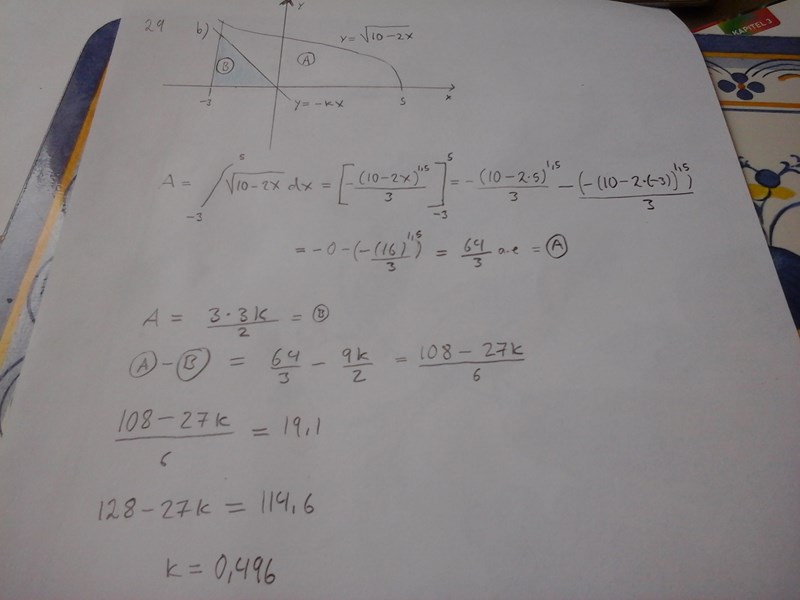 KAPITEL 3
29 b) y
y = √10-2x
B A
-3 5 x
y = -kx
A = ∫₋₃⁵ √10-2x dx = [-(10-2x)^1,5/3]₋₃⁵ = -(10-2·5)^1,5/3 - (-(10-2·(-3))^1,5)/3
= -0-(-(16)^1,5/3) = 64/3 a.e = A
A = 3·3k/2 = B
A - B = 64/3 - 9k/2 = 108-27k/6
108-27k/6 = 19,1
128-27k = 114,6
k = 0,496